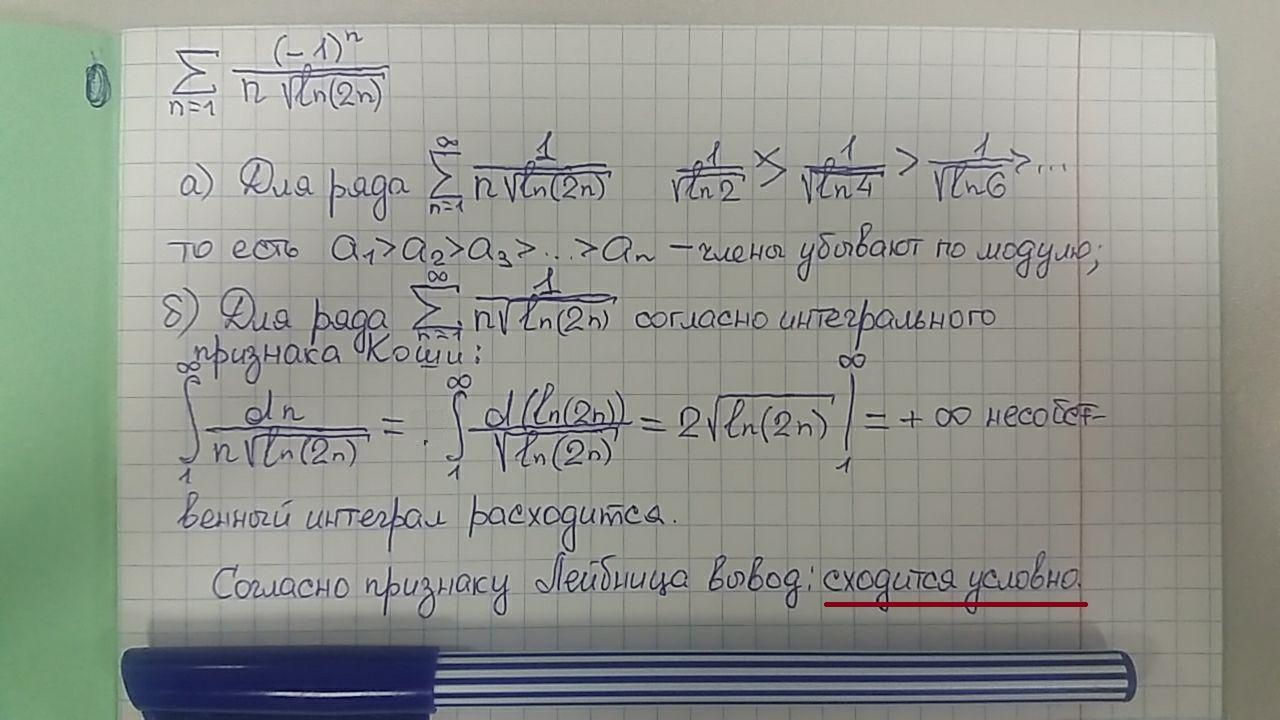 ∑_{n=1} (-1)^n / (n √ln(2n))
а) Для ряда ∑_{n=1}^{∞} 1 / (n √ln(2n))   1/√ln2 > 1/√ln4 > 1/√ln6 > ...
то есть a₁>a₂>a₃>...>aₙ – члены убывают по модулю;
б) Для ряда ∑_{n=1}^{∞} 1 / (n√ln(2n)) согласно интегрального
признака Коши:
∫_1^∞ dn / (n√ln(2n)) = ∫_1^∞ d(ln(2n)) / √ln(2n) = 2√ln(2n) |_1^∞ = + ∞ несобст-
венный интеграл расходится.
Согласно признаку Лейбница вывод: сходится условно.